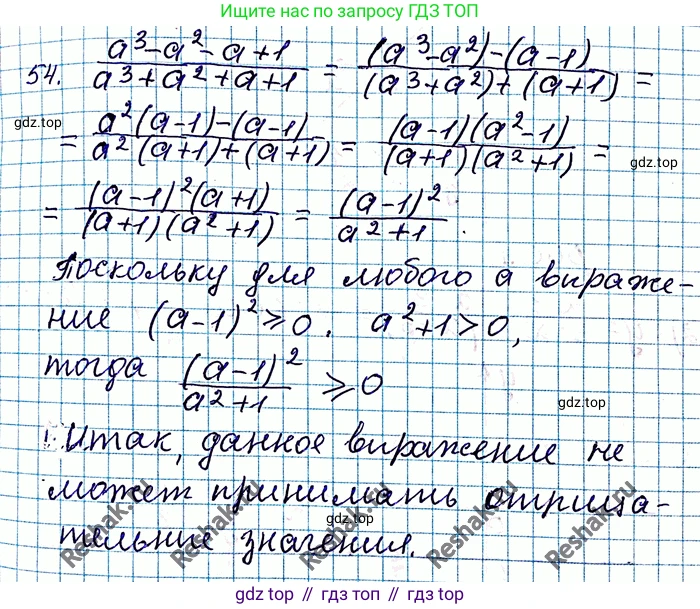 Ищите нас по запросу ГДЗ ТОП
54. (a³-a²-a+1)/(a³+a²+a+1) = ((a³-a²)-(a-1))/((a³+a²)+(a+1)) =
gdz.top
= (a²(a-1)-(a-1))/(a²(a+1)+(a+1)) = ((a-1)(a²-1))/((a+1)(a²+1)) =
gdz.top
= ((a-1)²(a+1))/((a+1)(a²+1)) = (a-1)²/(a²+1).
Поскольку для любого a выраже-
ние (a-1)² ⩾ 0, a²+1 > 0,
тогда (a-1)²/(a²+1) ⩾ 0
gdz.top
Итак, данное выражение не
может принимать отрица-
gdz.top
тельные значения.
Reshak.ru Reshak.ru Reshak.ru Reshak.ru Reshak.ru
gdz.top // gdz.top // gdz.top // gdz.top